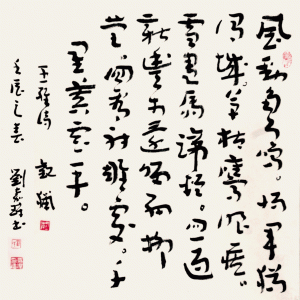 風勁角弓鳴將軍獵
渭城草枯鷹眼疾
雪盡馬蹄輕忽過
新豐市還歸細柳
營回看射雕處千
里暮雲平
王維詩 觀獵
之春 劉 書